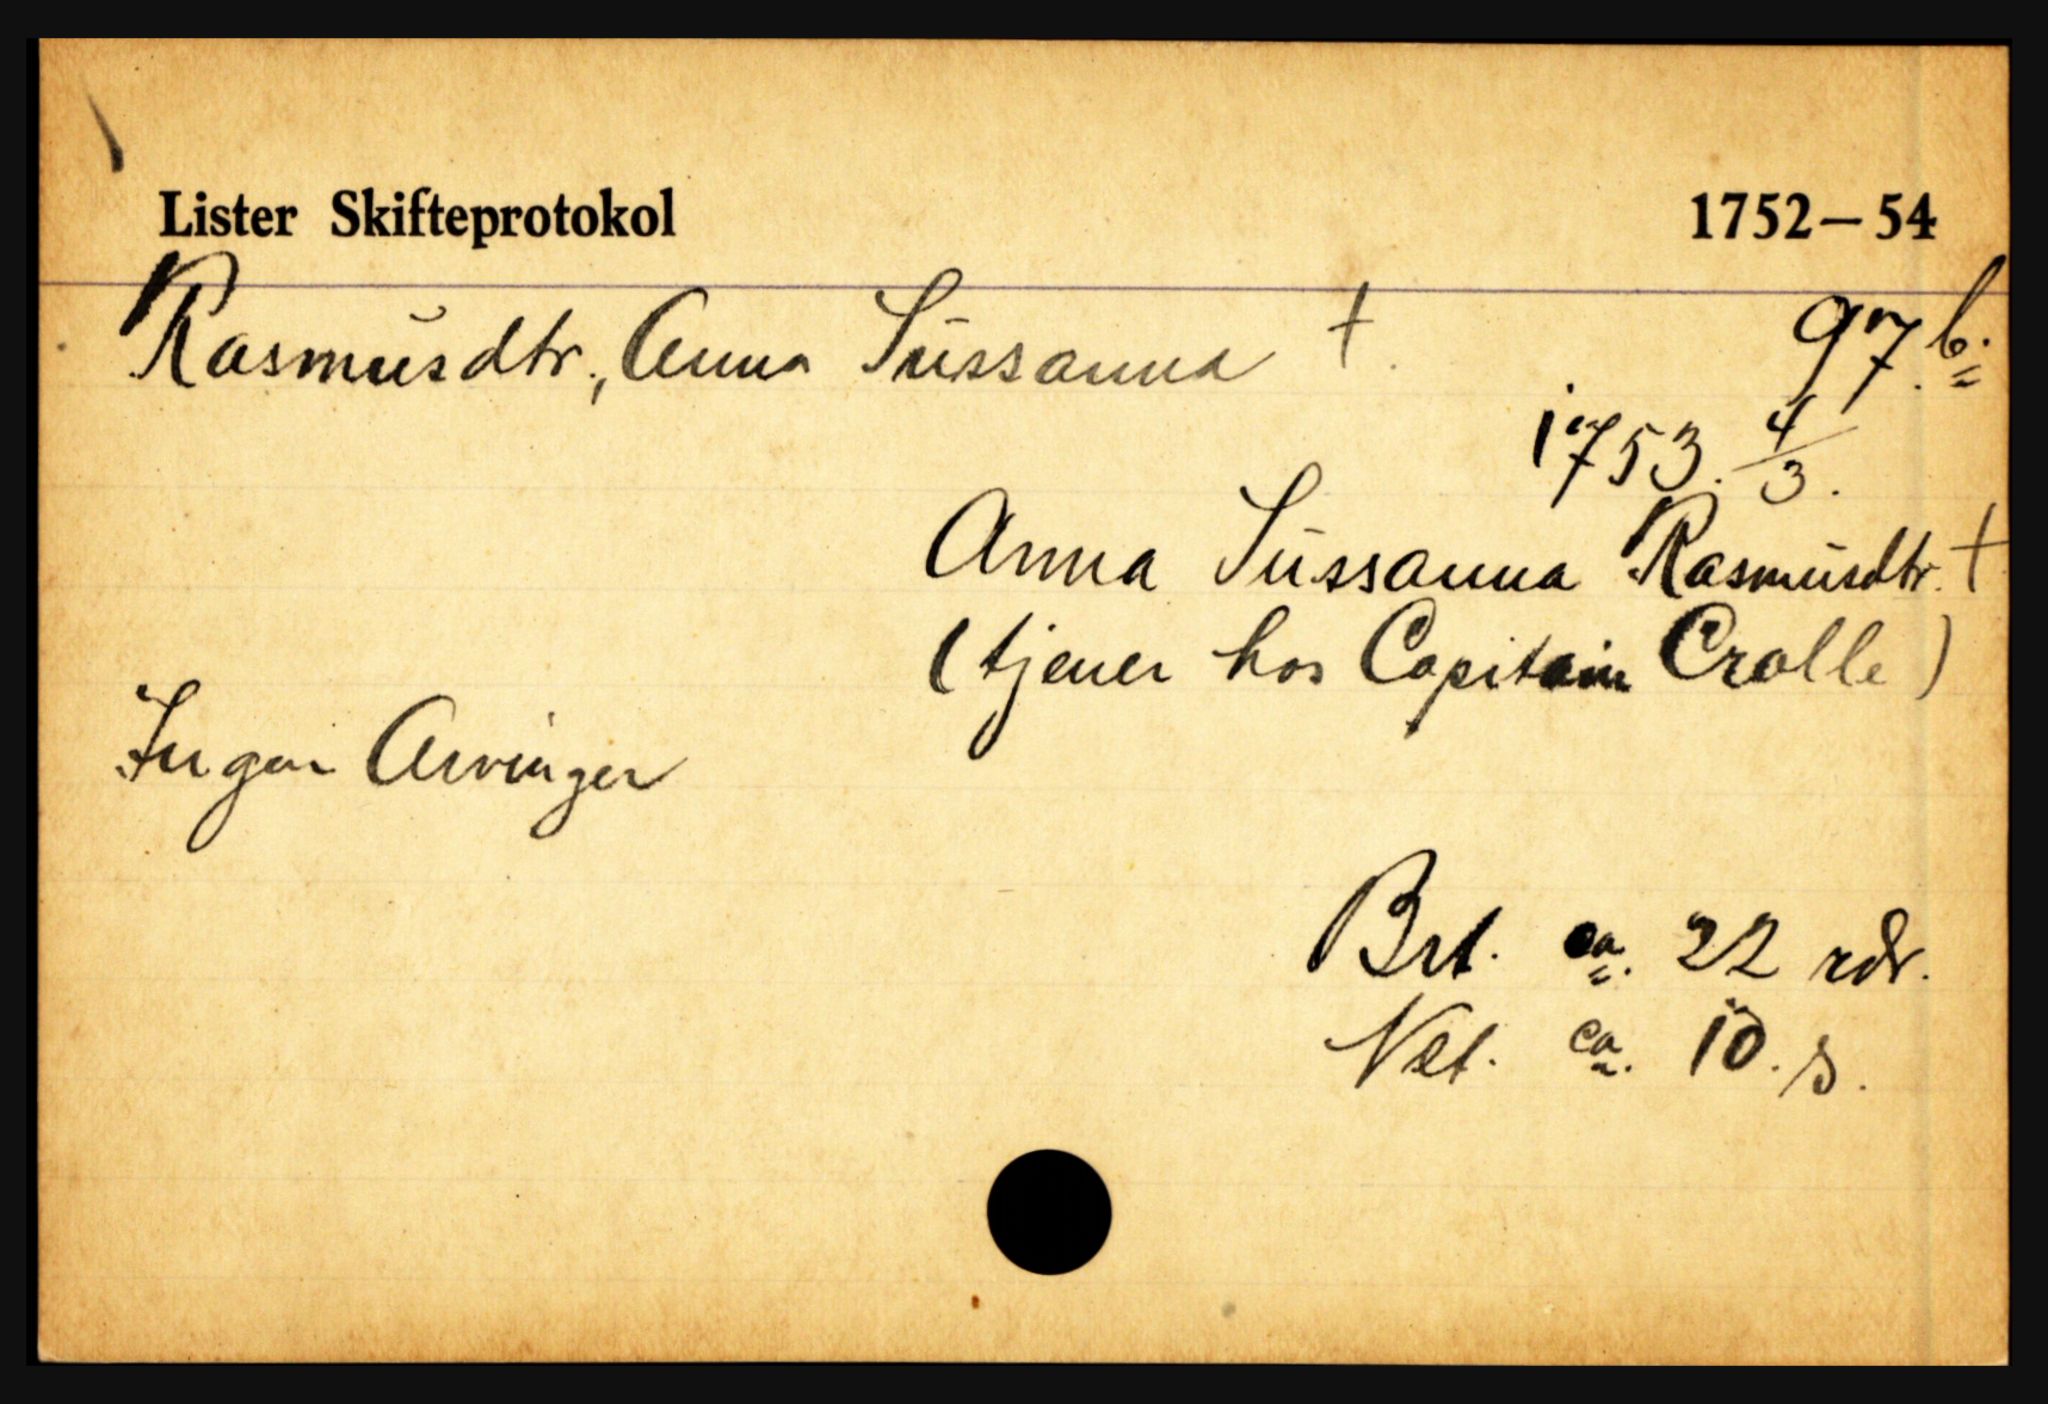 Lister Skifteprotokol 1752–54
Rasmusdtr., Anna Sussanna † 97.b.
1753. 4/3.
Anna Sussanna Rasmusdtr. †
(tjener hos Capitain Crolle)
Ingen Arvinger
Brt. ca. 22 rdr.
Net. ca. 10. s.